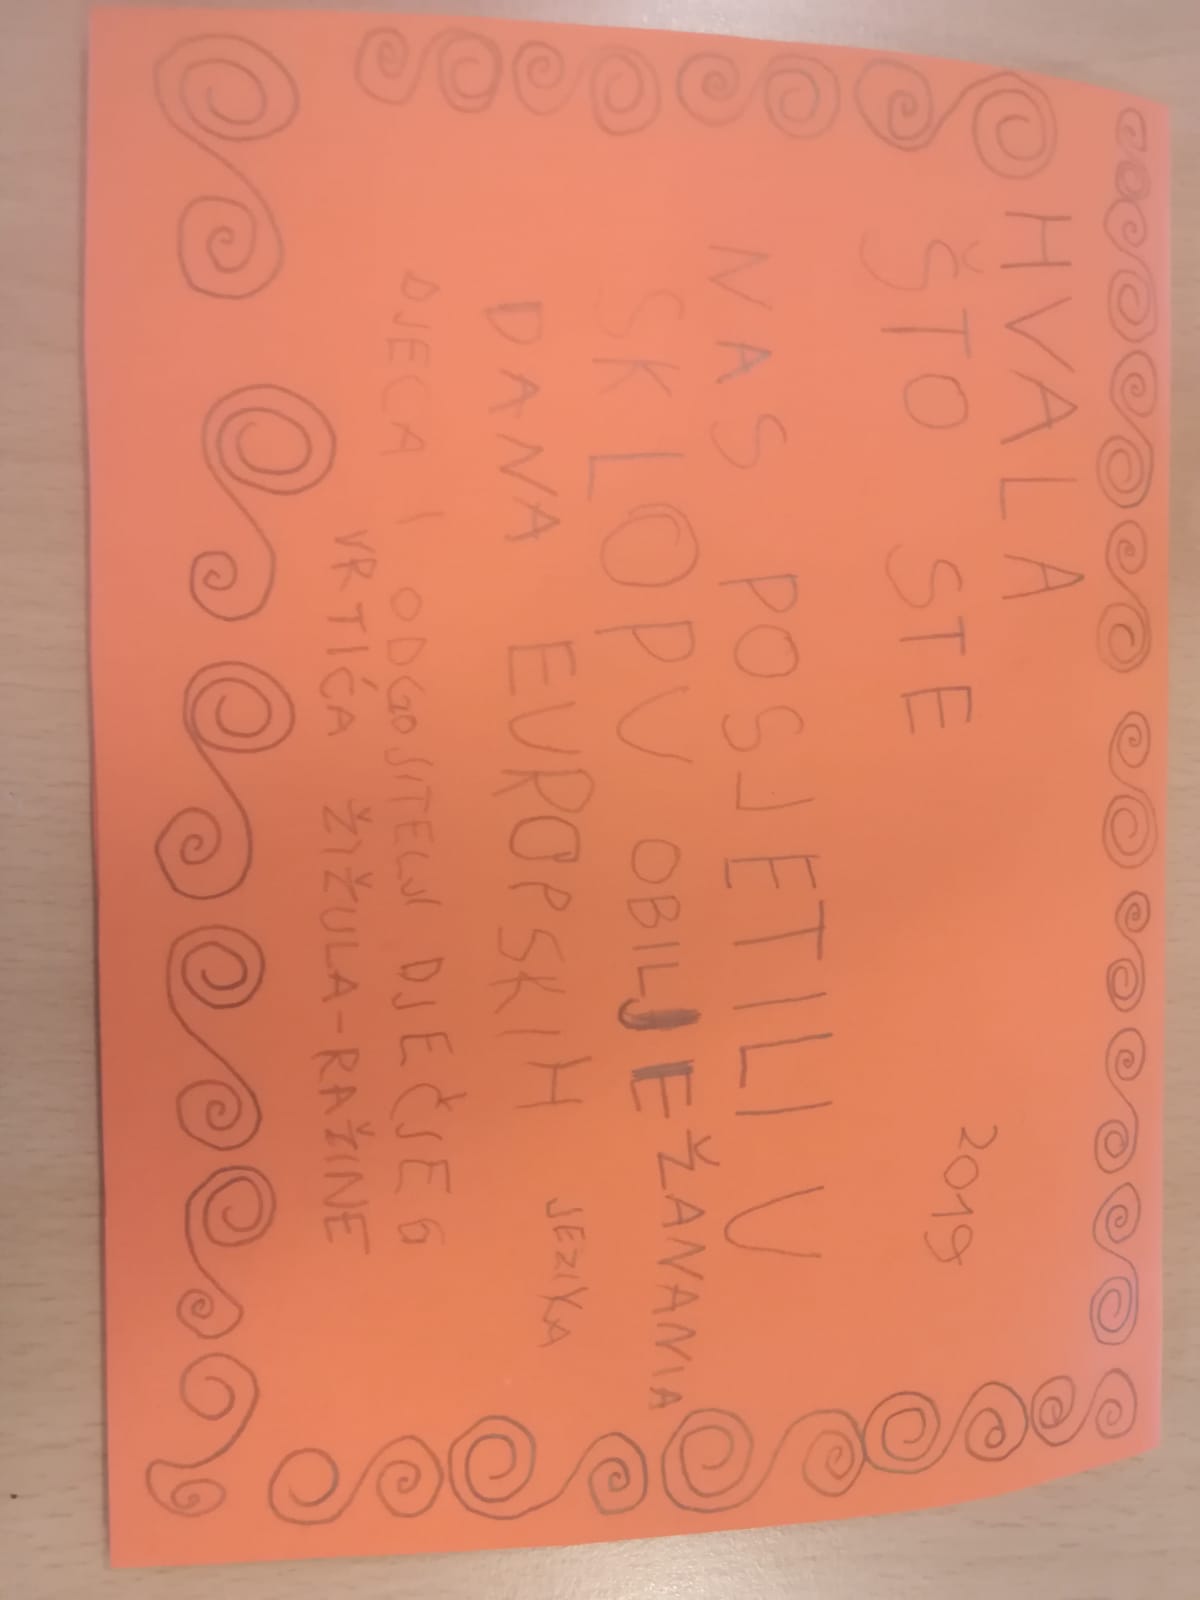 HVALA
ŠTO STE 2019
NAS POSJETILI U
SKLOPU OBILJEŽAVANJA
DANA EUROPSKIH JEZIKA
DJECA I ODGOJITELJI DJEČJEG
VRTIĆA ŽIŽULA-RAŽINE